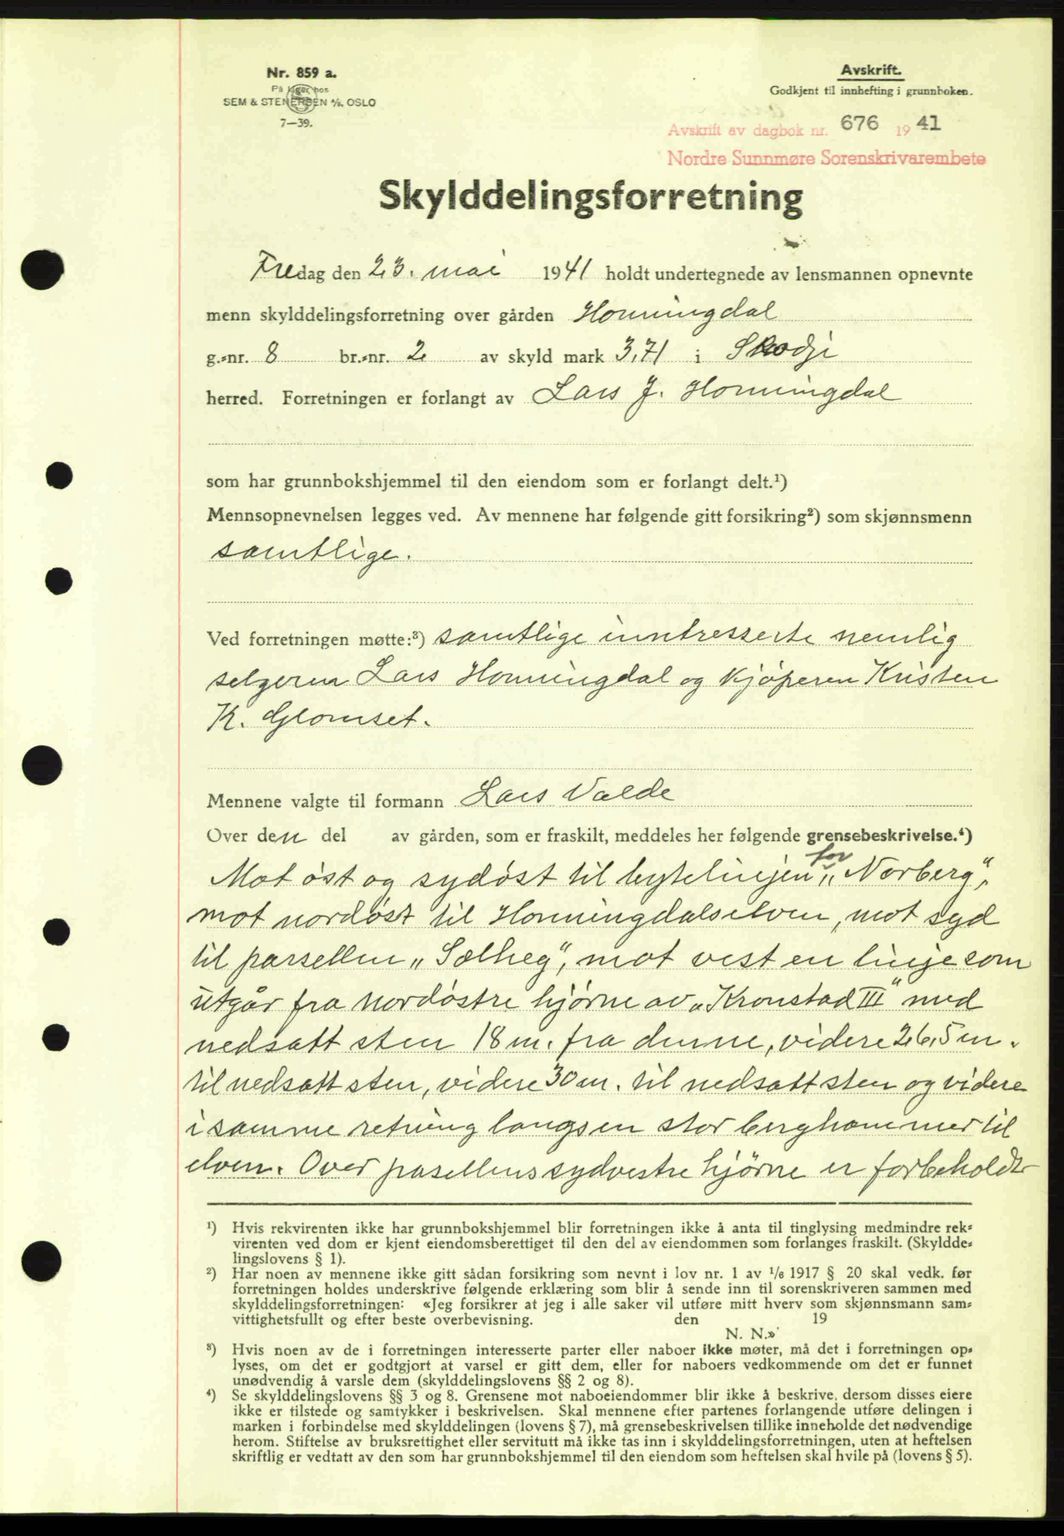 Nr. 859 a.
På lager hos
SEM & STENERSEN A/S, OSLO
7—39.
Avskrift.
Godkjent til innhefting i grunnboken.
Avskrift av dagbok nr. 676 1941
Nordre Sunnmøre Sorenskrivarembete
Skylddelingsforretning
Fredag den 23. mai 1941 holdt undertegnede av lensmannen opnevnte
menn skylddelingsforretning over gården Honningdal
g.-nr. 8 br.-nr. 2 av skyld mark 3,71 i Skodje
herred. Forretningen er forlangt av Lars J. Honningdal
som har grunnbokshjemmel til den eiendom som er forlangt delt.¹)
Mennsopnevnelsen legges ved. Av mennene har følgende gitt forsikring²) som skjønnsmenn
samtlige.
Ved forretningen møtte:³) samtlige inntresserte nemlig
selgeren Lars Honningdal og kjøperen Kristen
K. Glomset.
Mennene valgte til formann Lars Valde
Over den del av gården, som er fraskilt, meddeles her følgende grensebeskrivelse.⁴)
Mot øst og sydøst til bytelinjen for „Norberg",
mot nordøst til Honningdalselven, mot syd
til parsellen „Solheg", mot vest en linje som
utgår fra nordøstre hjørne av „Kronstad III" med
nedsatt sten 18 m. fra denne, videre 26,5 m.
til nedsatt sten, videre 30 m. til nedsatt sten og videre
i samme retning langs en stor berghammer til
elven. Over pasellens sydvestre hjørne er forbeholdt
¹) Hvis rekvirenten ikke har grunnbokshjemmel blir forretningen ikke å anta til tinglysing medmindre rek-
virenten ved dom er kjent eiendomsberettiget til den del av eiendommen som forlanges fraskilt. (Skyldde-
lingslovens § 1).
²) Har noen av mennene ikke gitt sådan forsikring som nevnt i lov nr. 1 av ¹/₆ 1917 § 20 skal vedk. før
forretningen holdes underskrive følgende erklæring som blir å sende inn til sorenskriveren sammen med
skylddelingsforretningen: «Jeg forsikrer at jeg i alle saker vil utføre mitt hverv som skjønnsmann sam-
vittighetsfullt og efter beste overbevisning. den 19
N. N.»
³) Hvis noen av de i forretningen interesserte parter eller naboer ikke møter, må det i forretningen op-
lyses, om det er godtgjort at varsel er gitt dem, eller for naboers vedkommende om det er funnet
unødvendig å varsle dem (skylddelingslovens §§ 2 og 8).
⁴) Se skylddelingslovens §§ 3 og 8. Grensene mot naboeiendommer blir ikke å beskrive, dersom disses eiere
ikke er tilstede og samtykker i beskrivelsen. Skal mennene efter partenes forlangende utføre delingen i
marken i forbindelse med skylddelingen (lovens § 7), må grensebeskrivelsen tillike inneholde det nødvendige
herom. Stiftelse av bruksrettighet eller servitutt må ikke tas inn i skylddelingsforretningen, uten at heftelsen
skriftlig er vedtatt av den som har grunnbokshjemmel til den eiendom som heftelsen skal hvile på (lovens § 5).